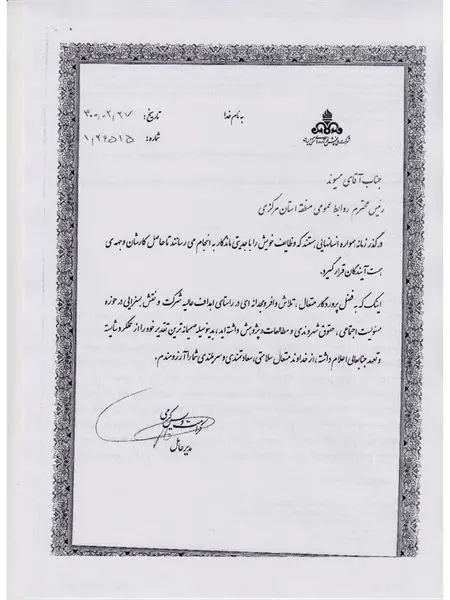 به نام خدا
تاریخ: ۳۰۰،۰۲،۲۷
شماره: ۱،۲۶۵۱۵
شرکت ملی پخش فرآورده‌های نفتی ایران
جناب آقای حمیوند
رئیس محترم روابط عمومی منطقه استان مرکزی
در گذر زمانه همواره انسانهایی هستند که وظایف خویش را با جدیتی ماندگار به انجام می رسانند تا حاصل کارشان وجهه ی
همت آیندگان قرار گیرد.
اینک که به فضل پروردگار متعال، تلاش وافر و مجدانه ای در راستای اهداف عالیه شرکت و نقش بسزایی در حوزه
مسئولیت اجتماعی، حقوق شهروندی و مطالعات و پژوهش داشته اید، بدینوسیله صمیمانه ترین تقدیر خود را از عملکرد شایسته
و تعهد جنابعالی اعلام داشته، از خداوند متعال سلامتی، سعادتمندی و سربلندی شما را آرزومندم.
کرامت ویس کرمی
مدیرعامل